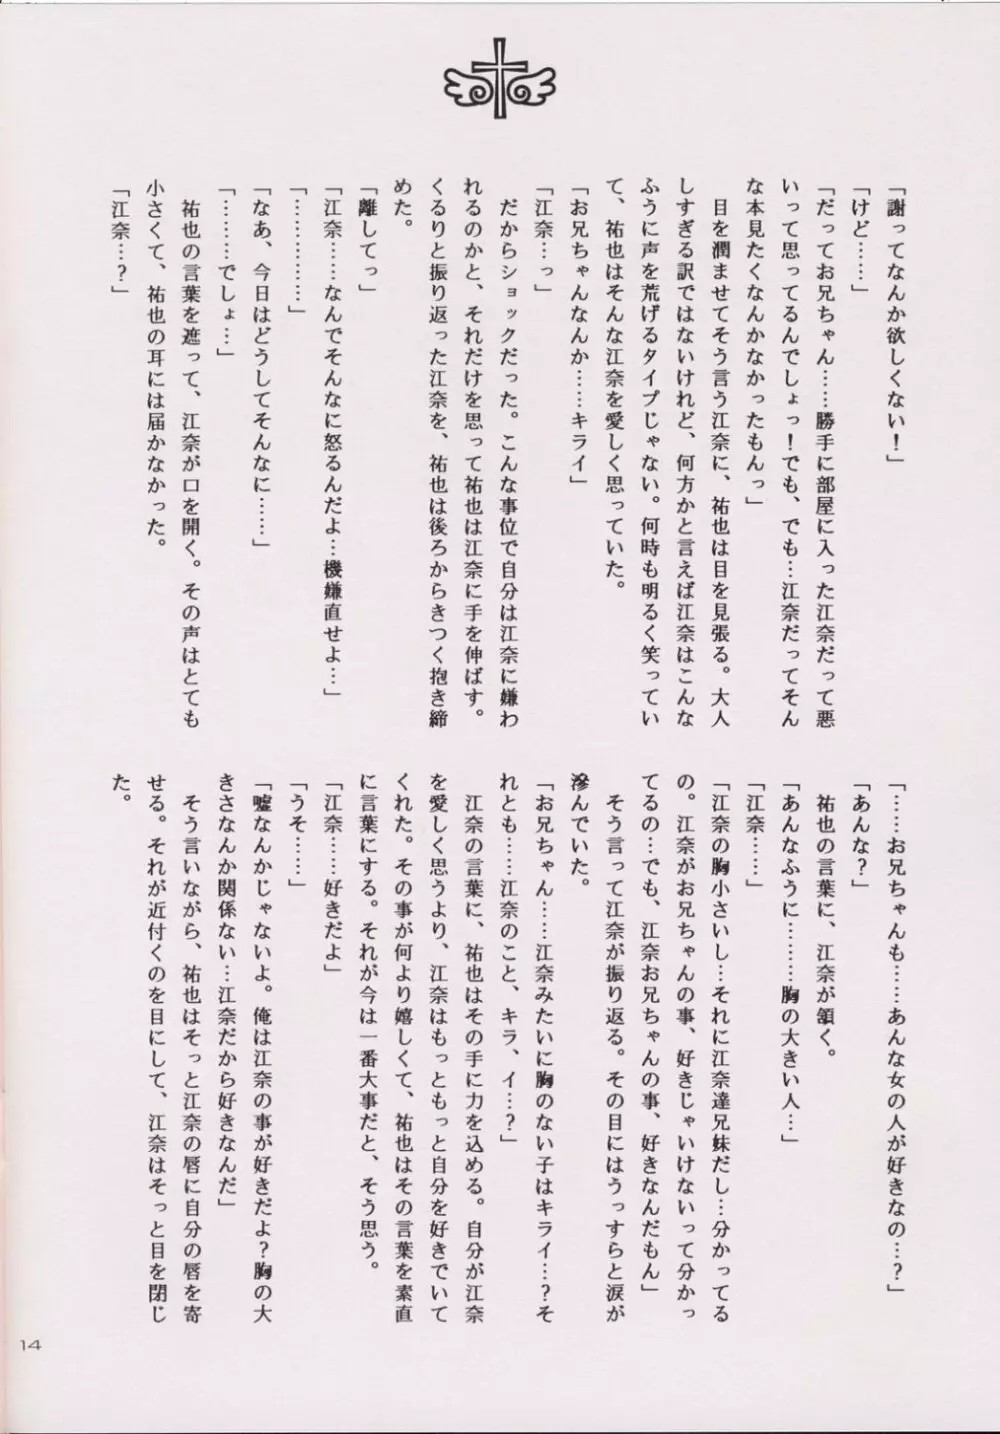 「謝ってなんか欲しくない！」
「けど……」
「だってお兄ちゃん……勝手に部屋に入った江奈だって悪
いって思ってるんでしょっ！でも、でも…江奈だってそん
な本見たくなんかなかったもんっ」
目を潤ませてそう言う江奈に、祐也は目を見張る。大人
しすぎる訳ではないけれど、何方かと言えば江奈はこんな
ふうに声を荒げるタイプじゃない。何時も明るく笑ってい
て、祐也はそんな江奈を愛しく思っていた。
「お兄ちゃんなんか……キライ」
「江奈…っ
だからショックだった。こんな事位で自分は江奈に嫌わ
れるのかと、それだけを思って祐也は江奈に手を伸ばす。
くるりと振り返った江奈を、祐也は後ろからきつく抱き締
めた。
「離してっ」
「江奈……なんでそんなに怒るんだよ…機嫌直せよ…」
「……………」
「なあ、今日はどうしてそんなに……」
「………でしょ…」
祐也の言葉を遮って、江奈が口を開く。その声はとても
小さくて、祐也の耳には届かなかった。
「江奈…？」
「……お兄ちゃんも……あんな女の人が好きなの…？」
「あんな？」
祐也の言葉に、江奈が頷く。
「あんなふうに………胸の大きい人…」
「江奈……」
「江奈の胸小さいし…それに江奈達兄妹だし…分かってる
の。江奈がお兄ちゃんの事、好きじゃいけないって分かっ
てるの…でも、江奈お兄ちゃんの事、好きなんだもん」
そう言って江奈が振り返る。その目にはうっすらと涙が
滲んでいた。
「お兄ちゃん……江奈みたいに胸のない子はキライ…？そ
れとも……江奈のこと、キラ、イ…？」
江奈の言葉に、祐也はその手に力を込める。自分が江奈
を愛しく思うより、江奈はもっともっと自分を好きでいて
くれた。その事が何より嬉しくて、祐也はその言葉を素直
に言葉にする。それが今は一番大事だと、そう思う。
「江奈……好きだよ」
「うそ……」
「嘘なんかじゃないよ。俺は江奈の事が好きだよ？胸の大
きさなんか関係ない…江奈だから好きなんだ」
そう言いながら、祐也はそっと江奈の唇に自分の唇を寄
せる。それが近付くのを目にして、江奈はそっと目を閉じ
た。
14